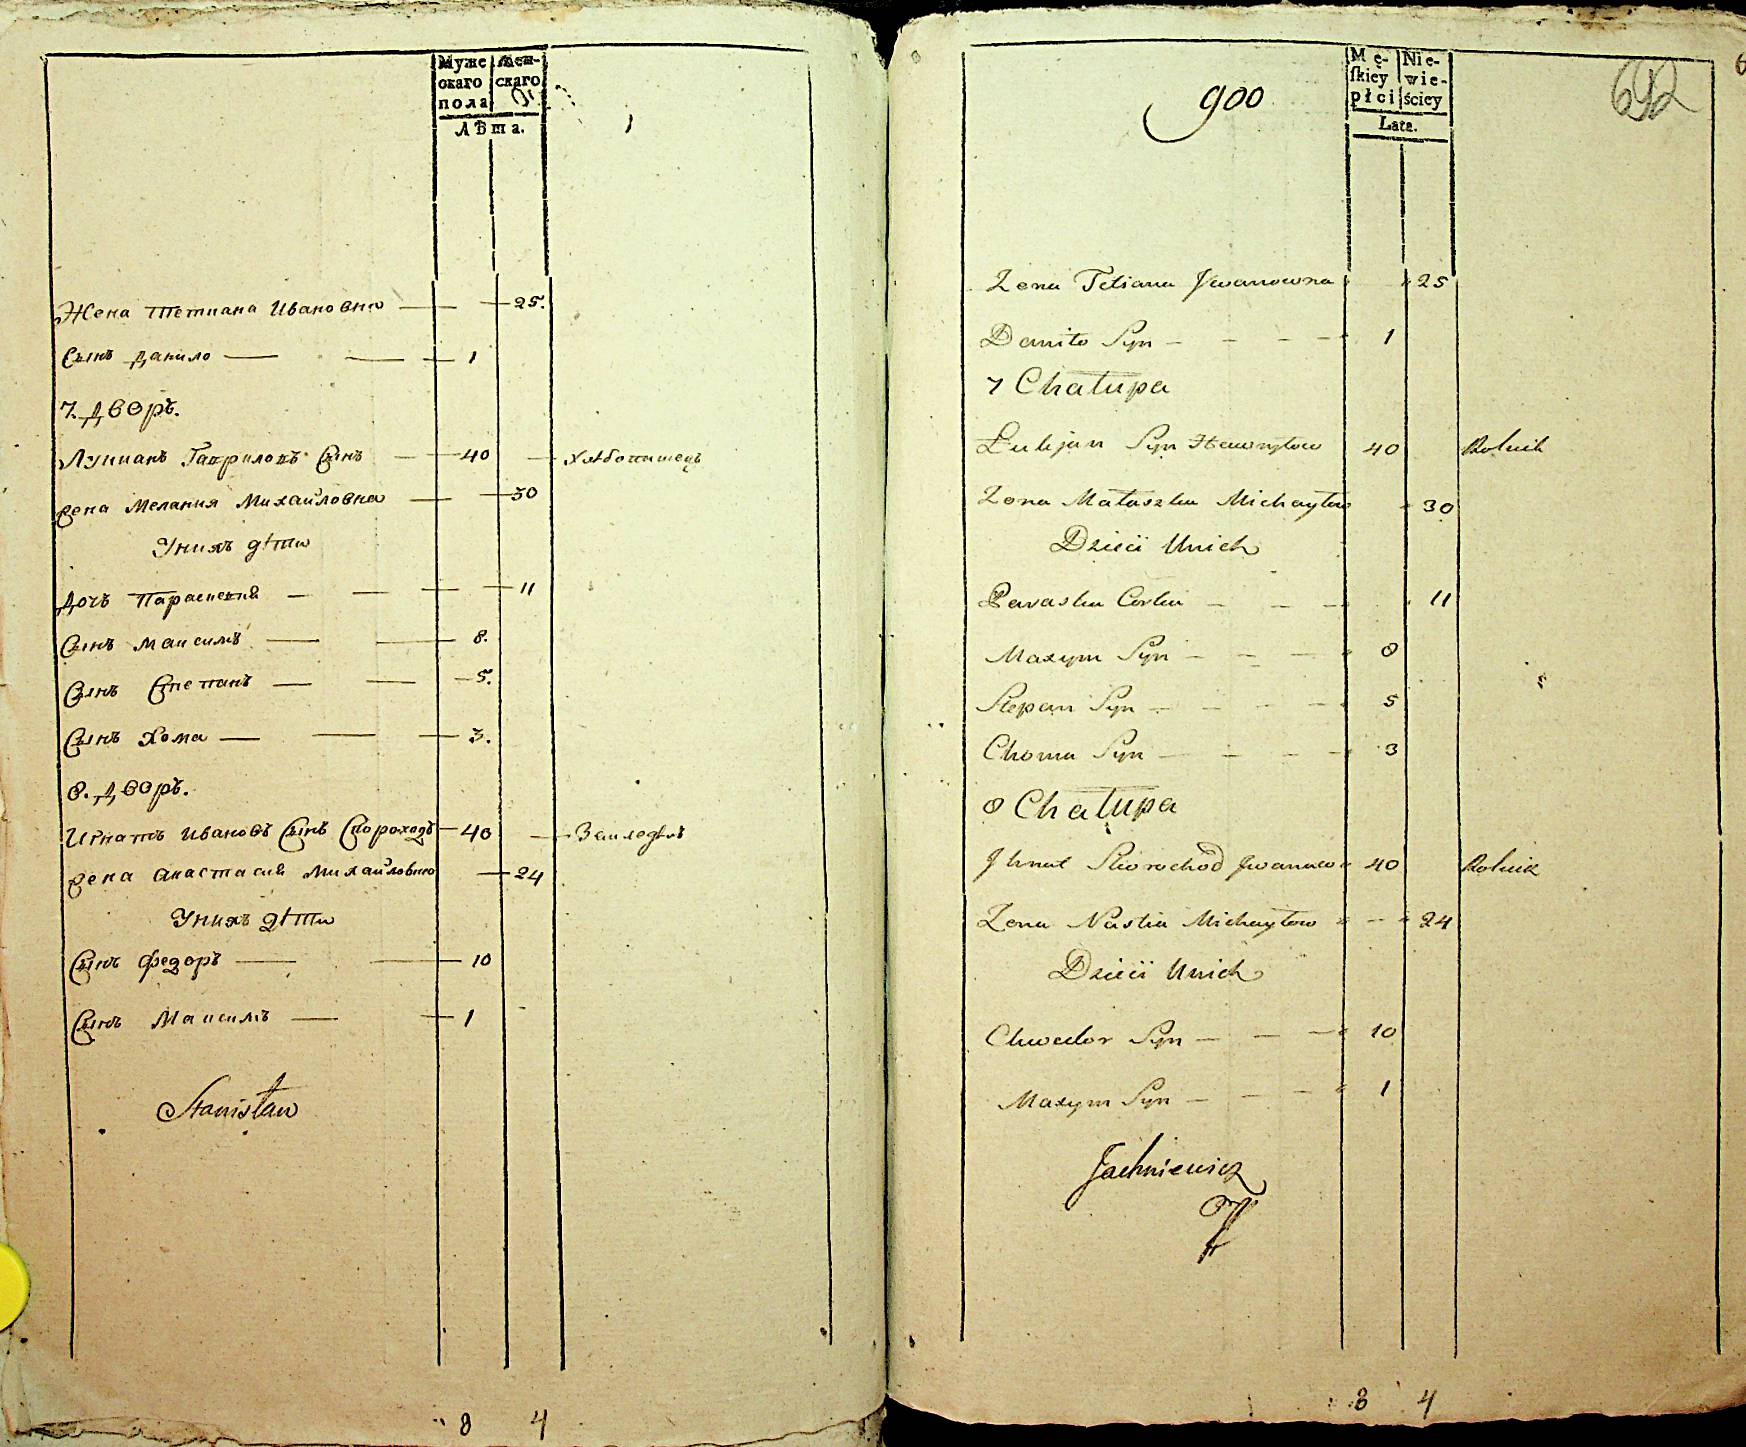 Муже Жен-
скаго скаго
пола
Лѣта.
Жена Тетиана Ивановна 25.
Сынъ Данило 1
7. Дворъ.
Лукианъ Гавриловъ Сынъ 40 Хлѣбопашецъ
Жена Мелания Михайловна 30
Унихъ дѣти
Дочь Параскевия 11
Сынъ Максимъ 8.
Сынъ Степанъ 5.
Сынъ Хома 3.
8. Дворъ.
Игнатъ Ивановъ Сынъ Скороходъ 40
Жена Анастасия Михайловна 24
Унихъ дѣти
Сынъ Федоръ 10
Сынъ Максимъ 1
Stanisław
8 4
900
692
Mę- Nie-
ſkiey wie-
płci ściey
Lata.
Zona Tetiana Jwanowna 25
Daniło Syn 1
7 Chałupa
Łukjan Syn Hawryłow 40 Rolnik
Zona Małaszka Michayłow 30
Dzieci Unich
Paraska Corka 11
Maxym Syn 8
Stepan Syn 5
Choma Syn 3
8 Chałupa
Jhnat Skorochod Jwanow 40 Rolnik
Zona Nastia Michayłow 24
Dzieci Unich
Chwedor Syn 10
Maxym Syn 1
Jachniewicz
8 4